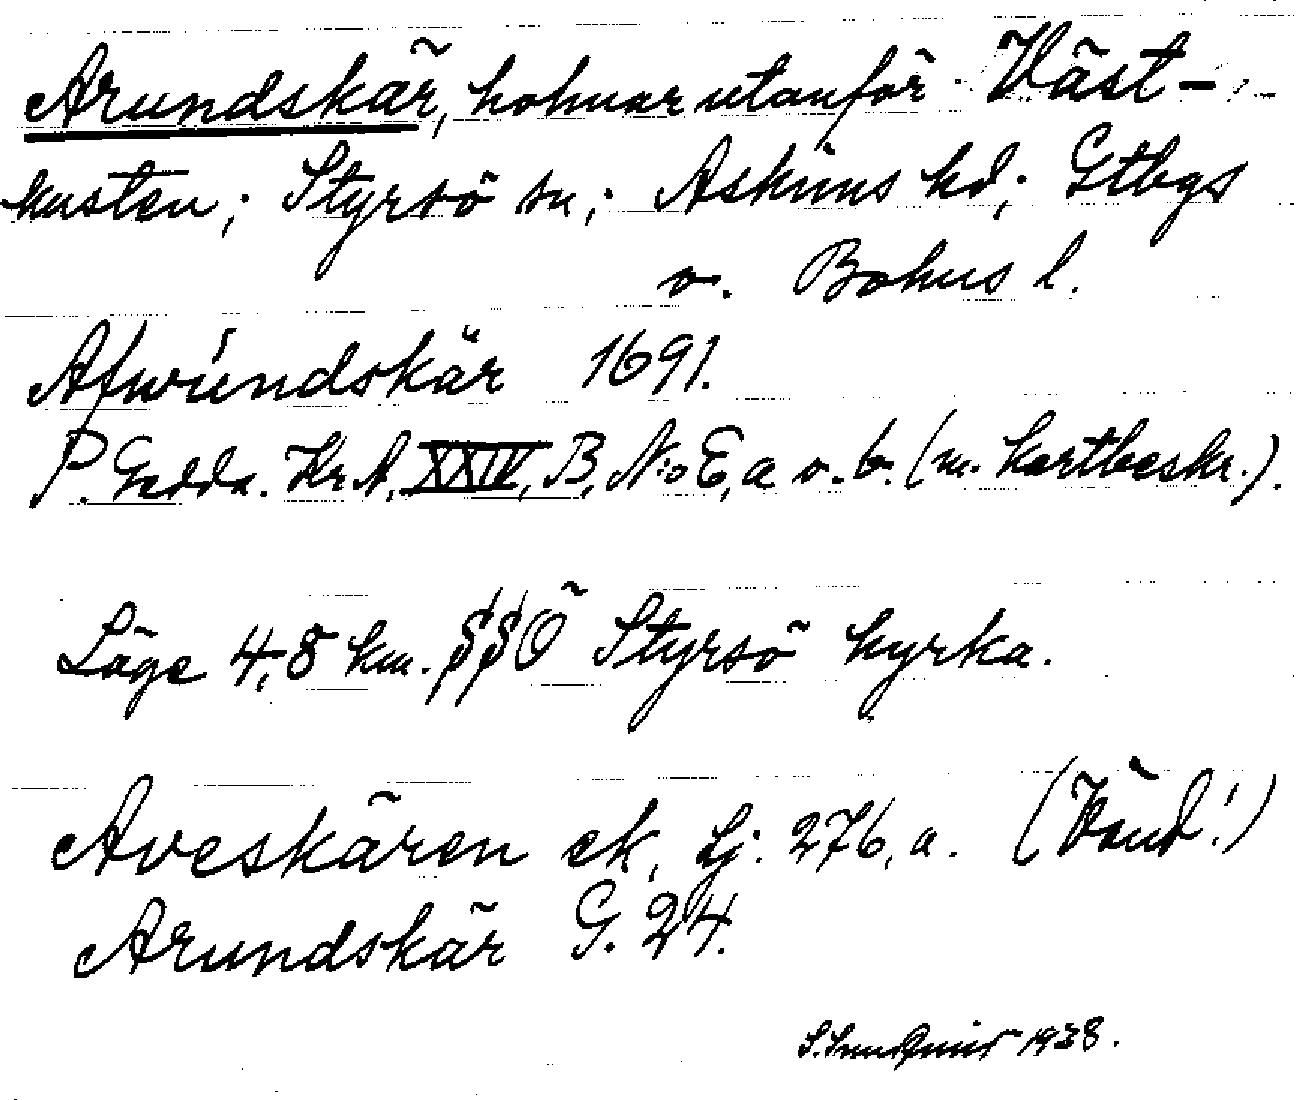 Arundskär, holmar utanför Väst-
kusten; Styrsö sn; Askims hd; Gtbgs
o. Bohus l.
Afwundskär 1691.
P. Gedda. Kr. A. XXIV, B, N:o E, a o. b. (m. kartbeskr.).
Läge 4,8 km. SSÖ Styrsö kyrka.
Aveskären ek, Lj. 276, a. (Vänd!)
Arundskär G. 24.
1938.